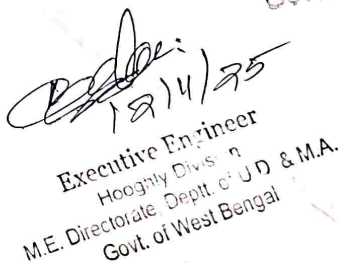 12/4/25
Executive Engineer
Hooghly Division
M.E. Directorate, Deptt. of U D & M.A.
Govt. of West Bengal